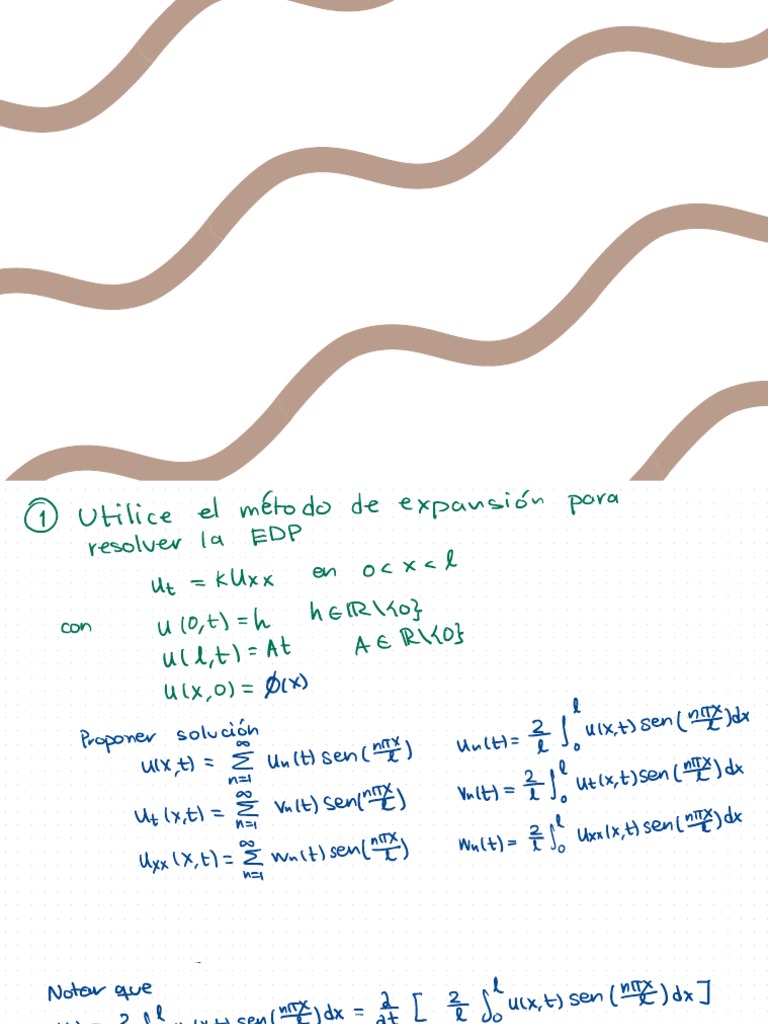 ① Utilice el método de expansión para
resolver la EDP
ut = kuxx en 0 < x < l
con u(0,t) = h h ∈ ℝ\{0}
u(l,t) = At A ∈ ℝ\{0}
u(x,0) = ϕ(x)
Proponer solución
u(x,t) = ∞ Σ n=1 un(t) sen(nπx/l) un(t) = 2/l ∫₀ˡ u(x,t) sen(nπx/l) dx
ut(x,t) = ∞ Σ n=1 vn(t) sen(nπx/l) vn(t) = 2/l ∫₀ˡ ut(x,t) sen(nπx/l) dx
uxx(x,t) = ∞ Σ n=1 wn(t) sen(nπx/l) wn(t) = 2/l ∫₀ˡ uxx(x,t) sen(nπx/l) dx
Notar que
sen(nπx/l) dx = ∂/∂t [ 2/l ∫₀ˡ u(x,t) sen(nπx/l) dx ]